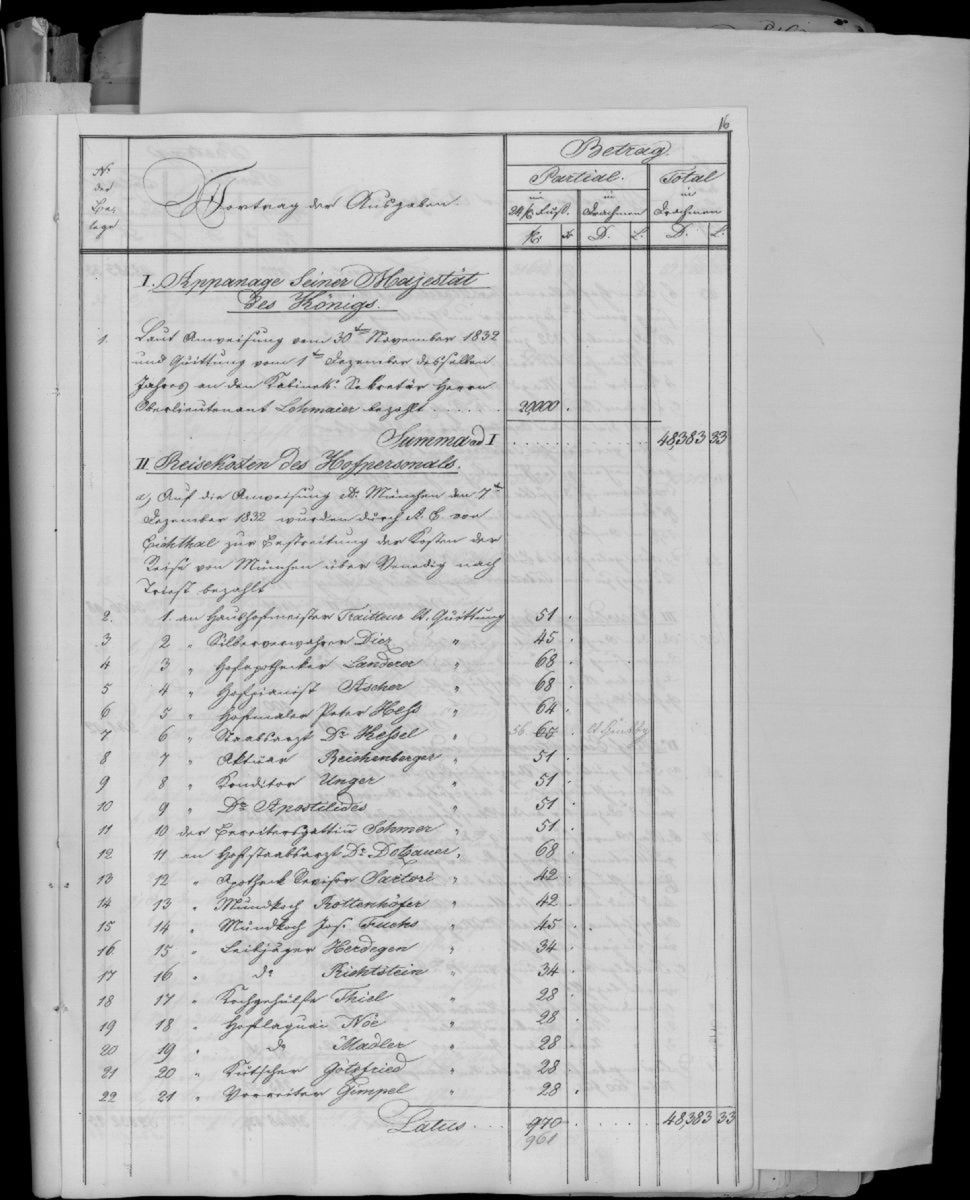 16
Nr der Beilage
Vortrag der Ausgaben.
Betrag
Partial. Total
im 24 f Fuß. in Drachmen in Drachmen
fr. x D. L. D. L.
I. Appanage Seiner Majestät
des Königs.
1. Laut Anweisung vom 30ten November 1832
und Quittung vom 1ten Dezember desselben
Jahres an den Kabinets-Sekretär Herrn
Oberlieutenant Lehmaier bezahlt . . . . . . 20,000 .
Summa ad I . . . . . . . 48,383 33
II. Reisekosten des Hofpersonals.
a, Auf die Anweisung dd. München den 7ten
Dezember 1832 wurden durch A. E. von
Eichthal zur Bestreitung der Kosten der
Reise von München über Venedig nach
Triest bezahlt
2. 1. an Haushofmeister Traitteur lt. Quittung 51 .
3 2 " Silberverwahrer Diez " 45 .
4 3 " Hofapotheker Landerer " 68 .
5 4 " Hofpianist Ascher " 68 .
6 5 " Hofmaler Peter Heß " 64 .
7 6 " Staabsarzt Dr Keßel " 56. 65 .
8 7 " Aktuar Reichenberger " 51 .
9 8 " Konditor Unger " 51 .
10 9 " Dr Apostilides " 51 .
11 10 der Bereitersgattin Schmer " 51 .
12 11 an Hofstaabsarzt Dr Dotzauer " 68 .
13 12 " Apothek Revisor Sartori " 42 .
14 13 " Mundkoch Rottenhöfer " 42 .
15 14 " Mundkoch Jos. Fuchs " 45 .
16. 15 " Leibjäger Herdegen " 34 .
17 16 " do Richtstein " 34 .
18 17 " Kochgehülfe Thiel " 28 .
19 18 " Hoflaquai Noë " 28 .
20 19 " do Madler " 28 .
21 20 " Kutscher Götzfried " 28 .
22 21 " Vorreiter Gimpel " 28 .
Latus . . . 970 . . . . . . 48,383 33
961